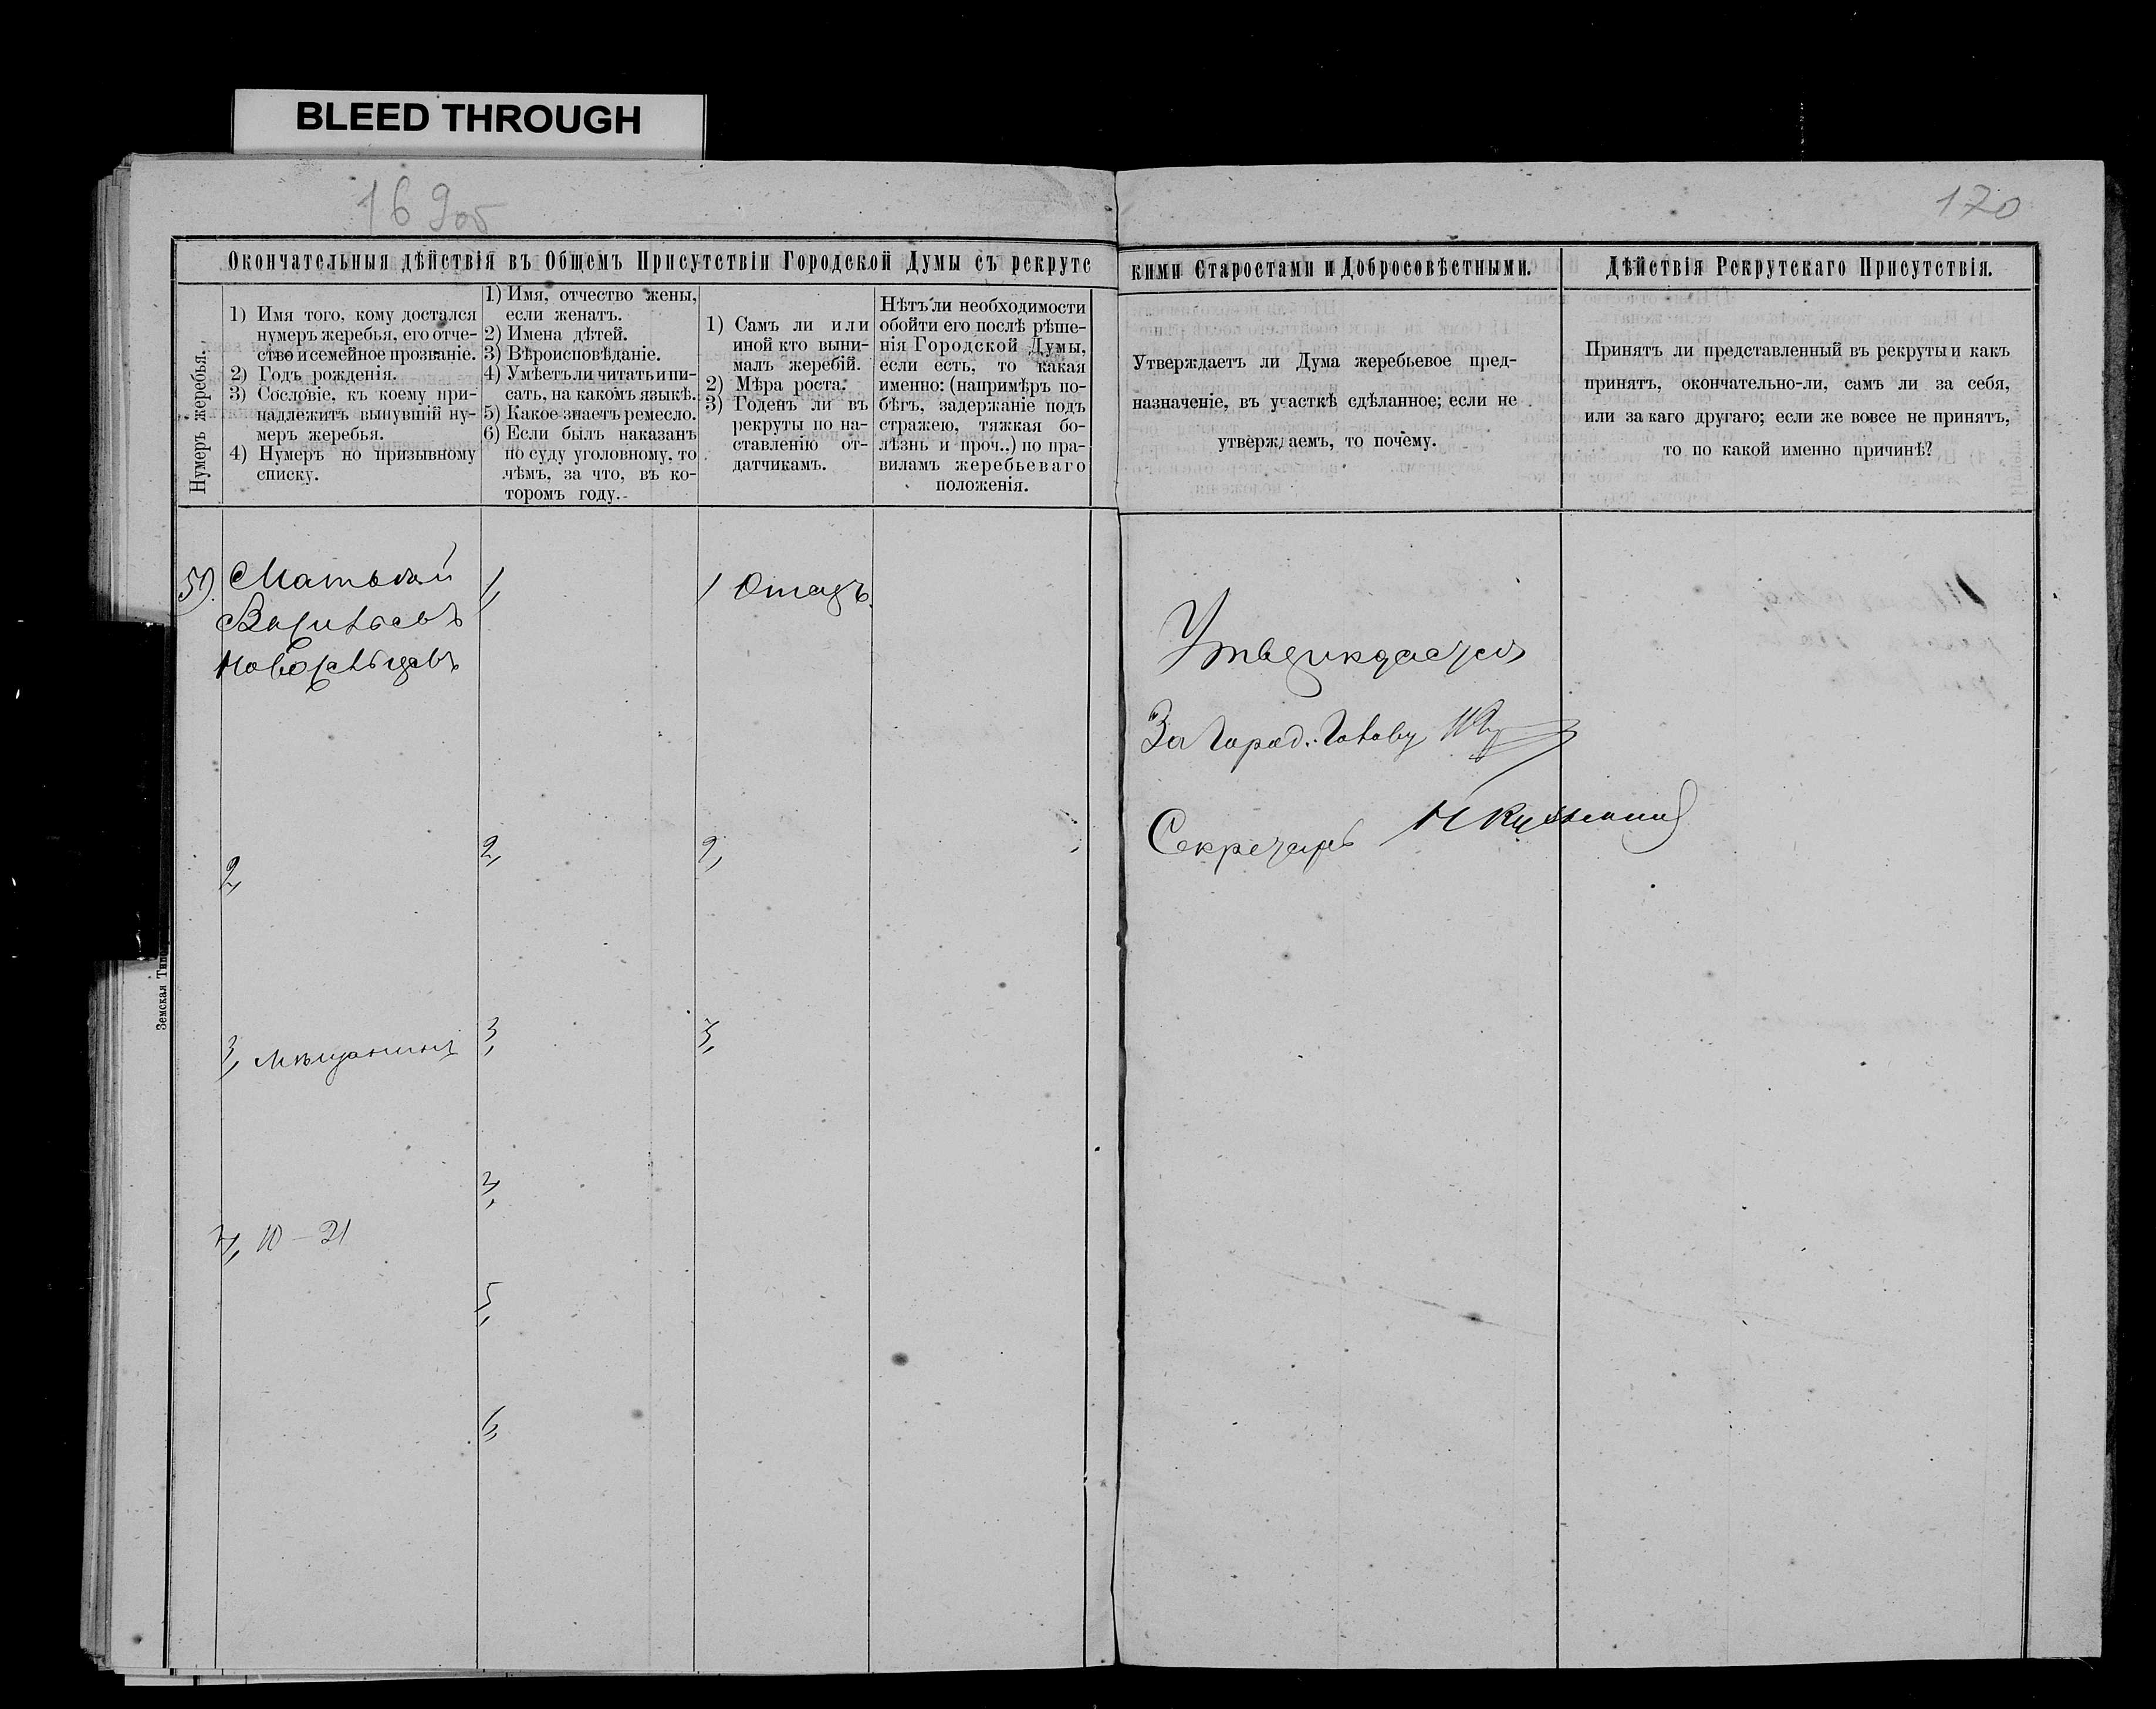 BLEED THROUGH
169об
170
Окончательныя дѣйствія въ Общемъ Присутствіи Городской Думы съ рекрутс
кими Старостами и Добросовѣстными.
Дѣйствія Рекрутскаго Присутствія.
Нумеръ жеребья.
1) Имя того, кому достался
нумеръ жеребья, его отче-
ство и семейное прозваніе.
2) Годъ рожденія.
3) Сословіе, къ коему при-
надлежитъ вынувшій ну-
меръ жеребья.
4) Нумеръ по призывному
списку.
1) Имя, отчество жены,
если женатъ.
2) Имена дѣтей.
3) Вѣроисповѣданіе.
4) Умѣетъ ли читать и пи-
сать, на какомъ языкѣ.
5) Какое знаетъ ремесло.
6) Если былъ наказанъ
по суду уголовному, то
чѣмъ, за что, въ ко-
торомъ году.
1) Самъ ли или
иной кто выни-
малъ жеребій.
2) Мѣра роста.
3) Годенъ ли въ
рекруты по на-
ставленію от-
датчикамъ.
Нѣтъ ли необходимости
обойти его послѣ рѣше-
нія Городской Думы,
если есть, то какая
именно: (напримѣръ по-
бѣгъ, задержаніе подъ
стражею, тяжкая бо-
лѣзнь и проч..) по пра-
виламъ жеребьеваго
положенія.
Утверждаетъ ли Дума жеребьевое пред-
назначеніе, въ участкѣ сдѣланное; если не
утверждаемъ, то почему.
Принятъ ли представленный въ рекруты и какъ
принятъ, окончательно-ли, самъ ли за себя,
или за каго другаго; если же вовсе не принятъ,
то по какой именно причинѣ?
59.
Матвѣй
Васильевъ
1,
1 Отецъ.
2,
2,
2,
3, мѣщанинъ
3,
3,
3,
4, 10 – 21
5,
6,
Утверждается
За Город. Голову
Секретарь
Земская Тип